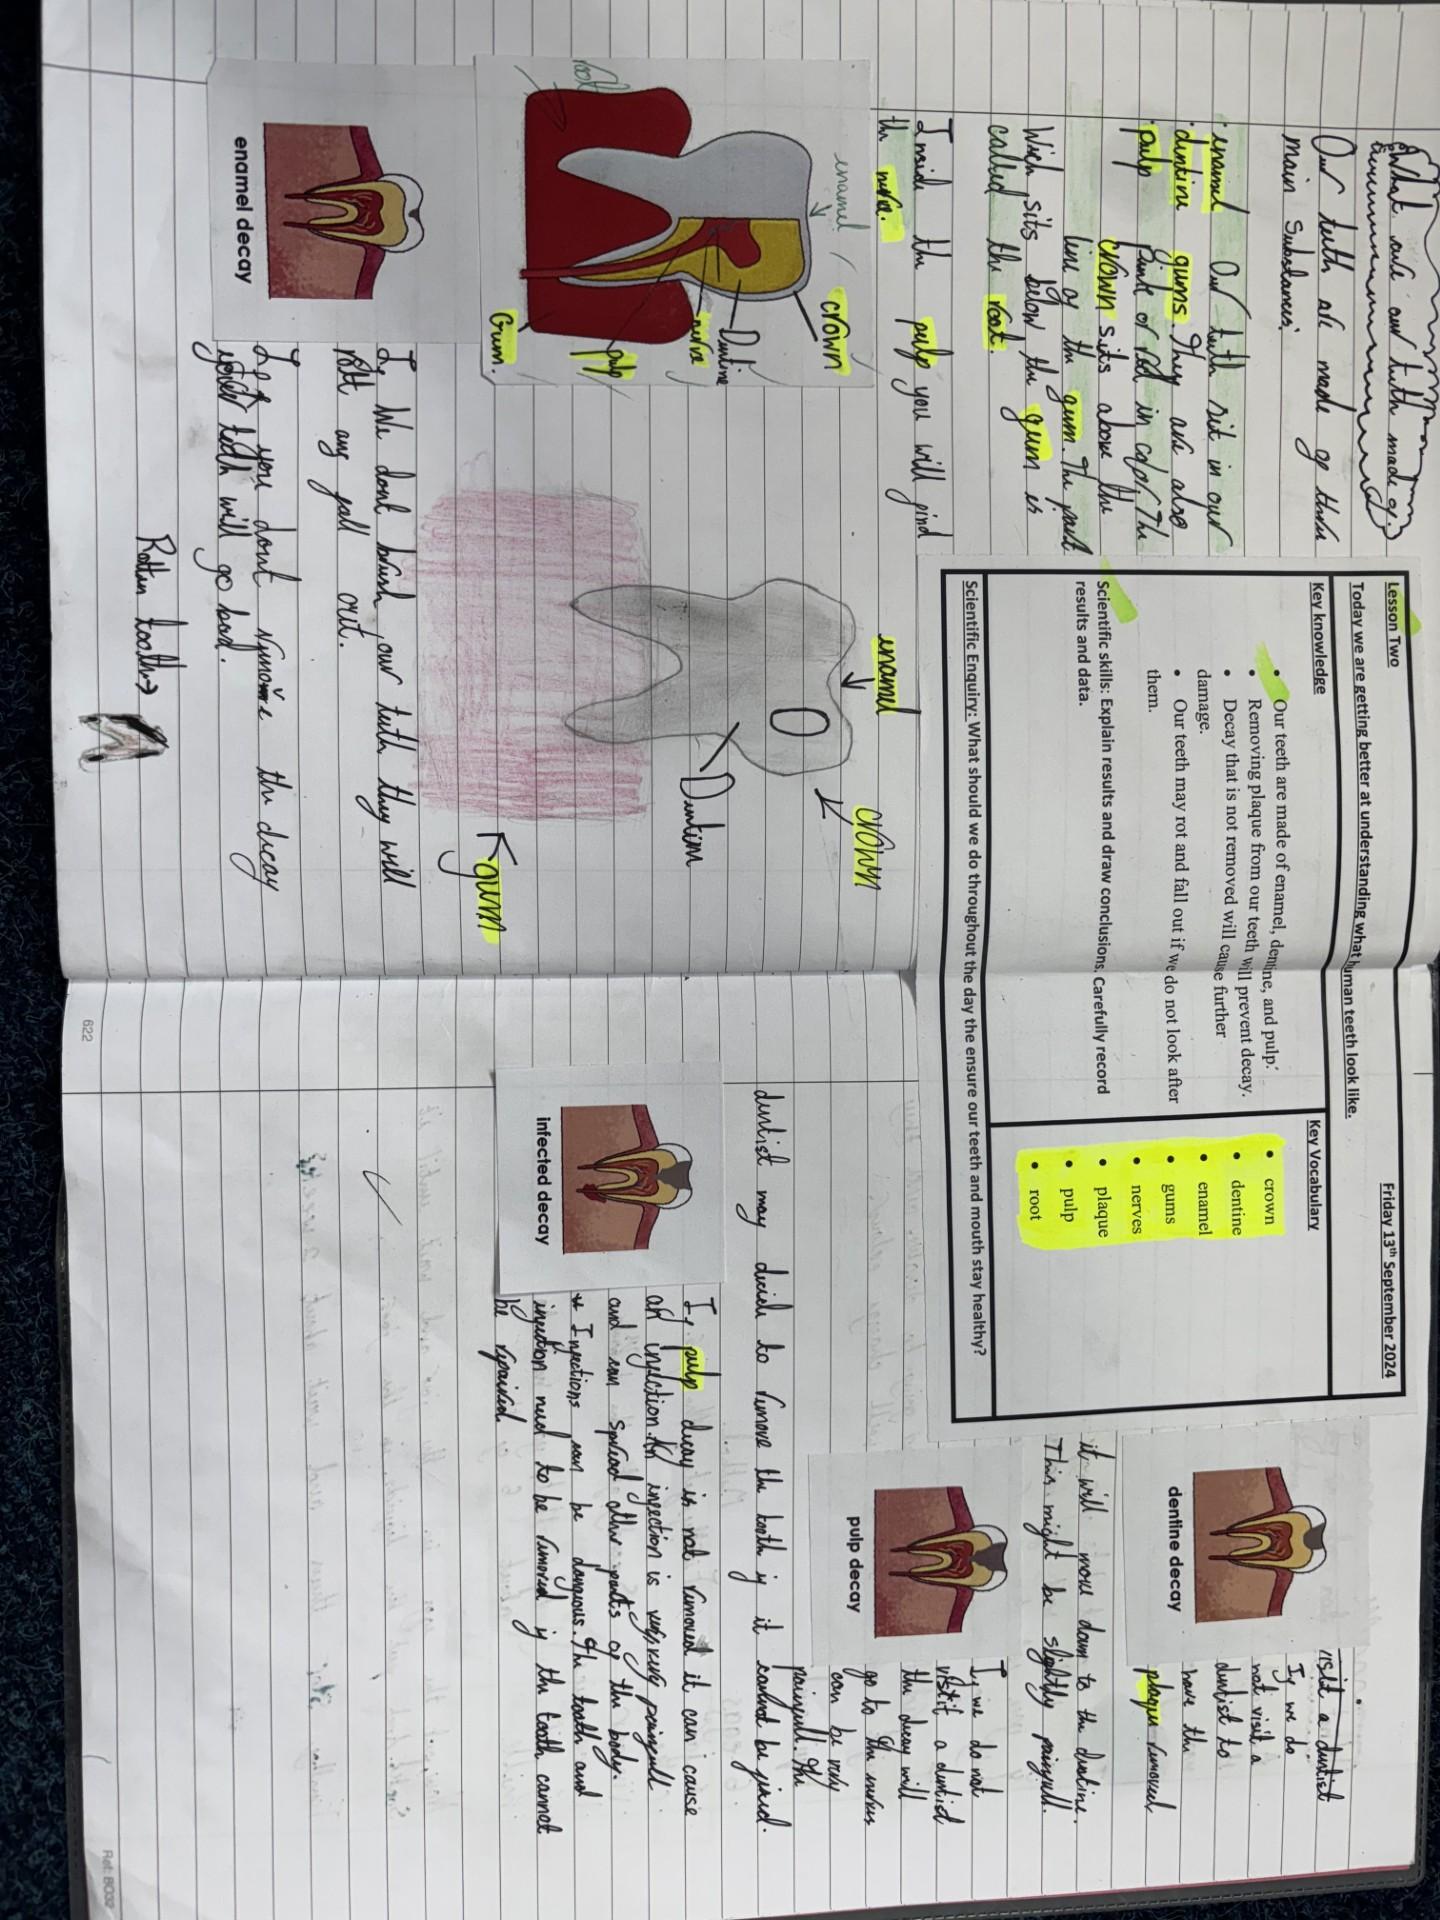 Lesson Two
Friday 13th September 2024
Today we are getting better at understanding what human teeth look like.
Key knowledge
• Our teeth are made of enamel, dentine, and pulp.
• Removing plaque from our teeth will prevent decay.
• Decay that is not removed will cause further
damage.
• Our teeth may rot and fall out if we do not look after
them.
Scientific skills: Explain results and draw conclusions. Carefully record
results and data.
Key Vocabulary
• crown
• dentine
• enamel
• gums
• nerves
• plaque
• pulp
• root
Scientific Enquiry: What should we do throughout the day the ensure our teeth and mouth stay healthy?
What are our teeth made of?
Our teeth are made of three
main Substances;
• enamel
• dentine
• pulp
Our teeth sit in our
gums. They are also
pink or red in color. The
crown sits above the
line of the gum. The part
Wich sits below the gum is
called the root.
Inside the pulp you will find
the nerve.
enamel
crown
Dentine
nerve
pulp
Gum.
root
enamel
crown
Dentine
gum
enamel decay
If We dont brush our teeth they will
rott any fall out.
If you dont remove the decay
teeth will go bad.
Rotten tooth→
622
dentine decay
visit a dentist
If we do
not visit a
dentist to
have the
plaque removed
it will move down to the dentine.
This might be slightly painfull.
pulp decay
If we do not
visit a dentist
the decay will
go to the nerves
can be very
painfull. The
dentist may decide to remove the tooth if it cannot be fixed.
infected decay
If pulp decay is not removed it can cause
an infection. An infection is very painfull
and can spread other parts of the body.
Infections can be dangrous. The tooth and
infection need to be removed if the tooth cannot
be repaired
Ref: BO32